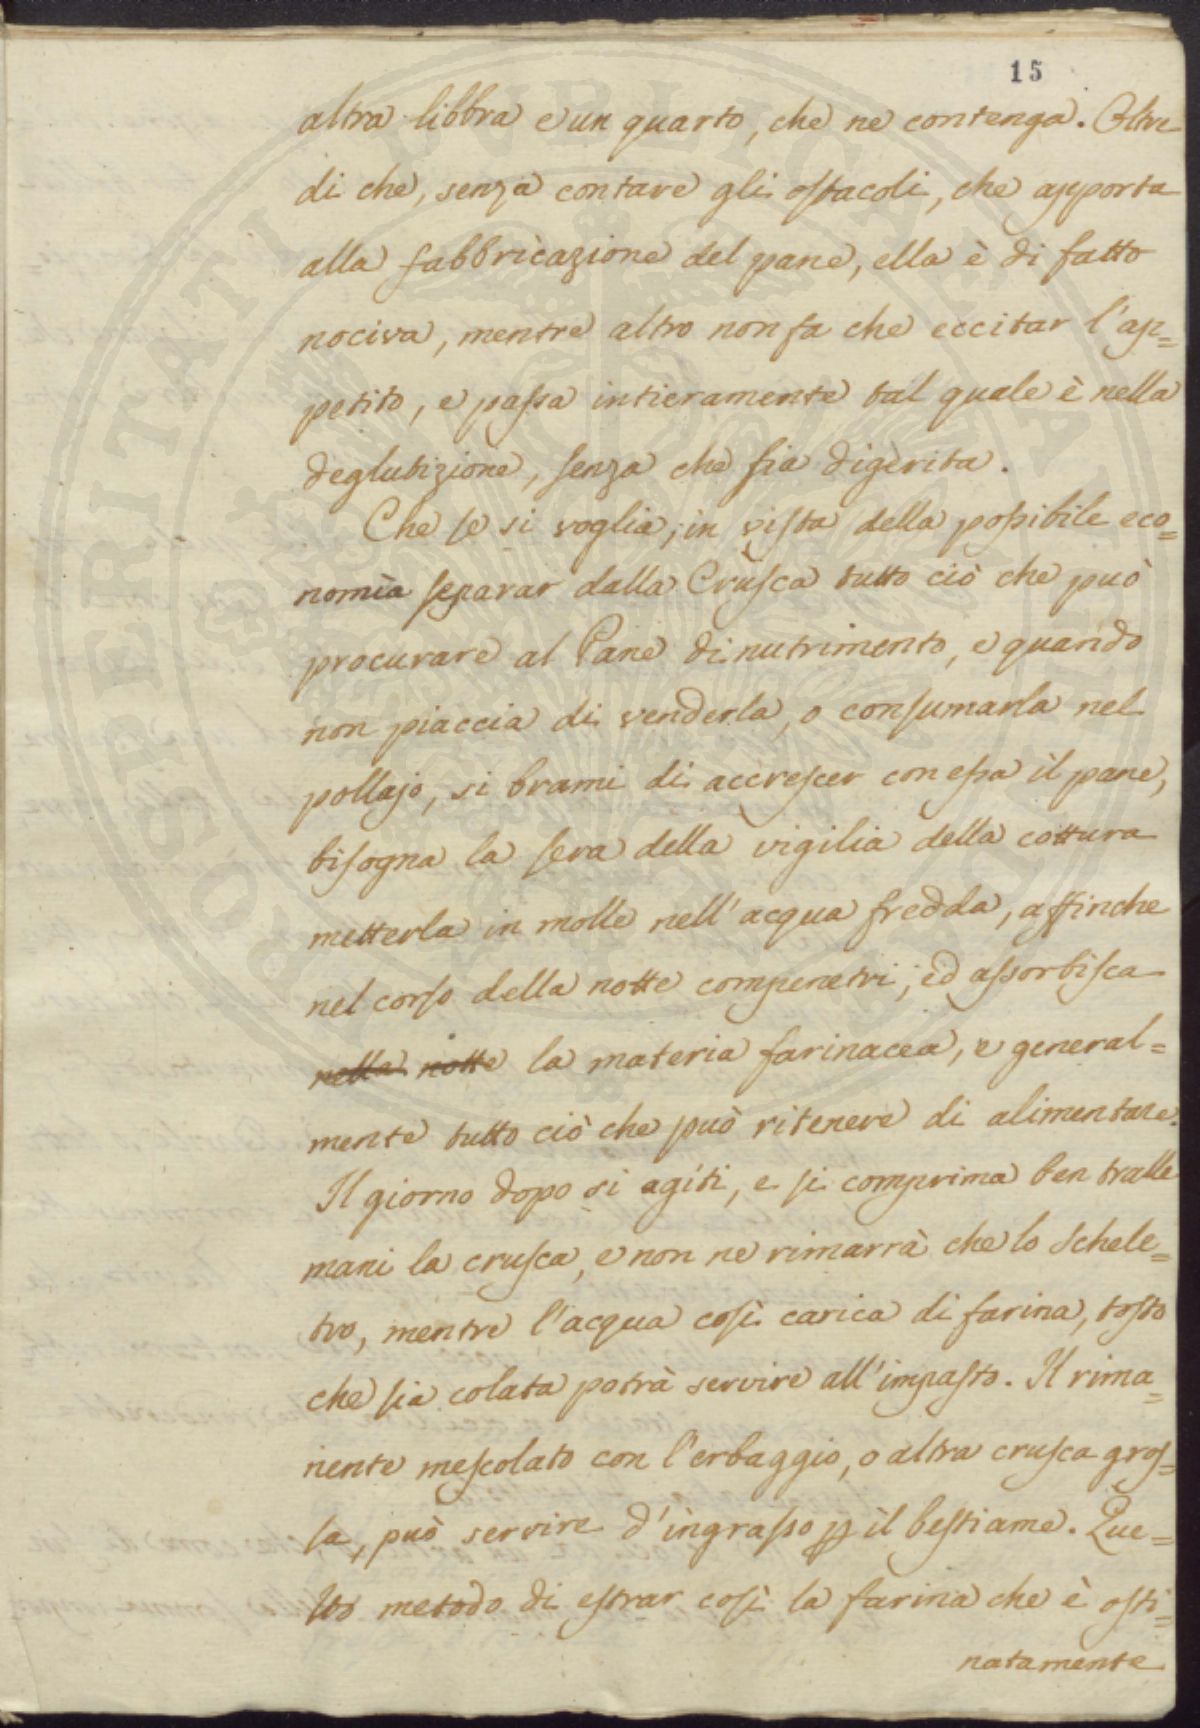 15
altra libbra e un quarto, che ne contenga. Oltre
di che, senza contare gli ostacoli, che apporta
alla fabbricazione del pane, ella è di fatto
nociva, mentre altro non fa che eccitar l'ap=
petito, e passa intieramente tal quale è nella
deglutizione, senza che sia digerita.
Che se si voglia, in vista della possibile eco=
nomìa separar dalla Crusca tutto ciò che può
procurare al Pane di nutrimento, e quando
non piaccia di venderla, o consumarla nel
pollajo, si brami di accrescer con essa il pane,
bisogna la sera della vigilia della cottura
metterla in molle nell'acqua fredda, affinche
nel corso della notte compenetri, ed assorbisca
nella notte la materia farinacea, e general=
mente tutto ciò che può ritenere di alimentare.
Il giorno dopo si agiti, e si comprima ben tralle
mani la crusca, e non ne rimarrà che lo schele=
tro, mentre l'acqua così carica di farina, tosto
che sia colata potrà servire all'impasto. Il rima=
nente mescolato con l'erbaggio, o altra crusca gros=
sa, può servire d'ingrasso p il bestiame. Que=
sto metodo di estrar così la farina che è osti=
natamente
PROSPERITATI PUBLICAE AUGENDAE